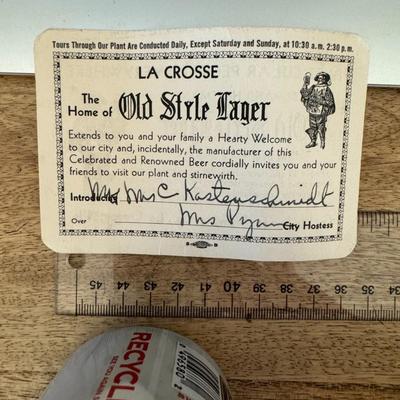 Tours Through Our Plant Are Conducted Daily, Except Saturday and Sunday, at 10:30 a.m. 2:30 p.m.
LA CROSSE
The Home of Old Style Lager
Extends to you and your family a Hearty Welcome
to our city and, incidentally, the manufacturer of this
Celebrated and Renowned Beer cordially invites you and your
friends to visit our plant and stirnewirth.
Introducing Mr Mrs C Kastenschmidt
Over Mrs City Hostess
45 44 43 42 41 40 39 38 37 36 35 34 33 32
RECYCL
SEE YOU AGAIN